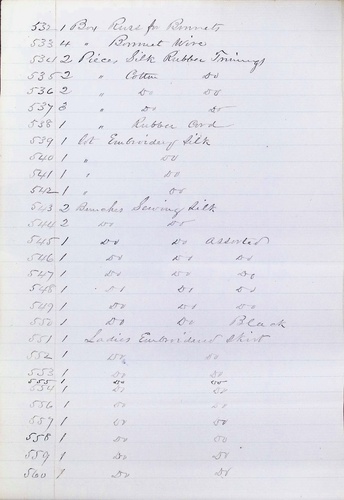 532 1 Box Rurs for Bonnets
533 4 " Bonnet Wire
534 2 Pieces Silk Rubber Trinings
535 2 " Cotton Do
536 2 " Do Do
537 3 " Do Do
538 1 " Rubber Cord
539 1 Lot Embroidery Silk
540 1 " Do
541 1 " Do
542 1 " Do
543 2 Bunches Sewing Silk
544 2 Do Do
545 1 Do Do Assorted
546 1 Do Do Do
547 1 Do Do Do
548 1 Do Do Do
549 1 Do Do Do
550 1 Do Do Black
551 1 Ladies Embroidered Skirt
552 1 Do Do
553 1 Do Do
555 1 Do Do
554 1 Do Do
556 1 Do Do
557 1 Do Do
558 1 Do Do
559 1 Do Do
560 1 Do Do